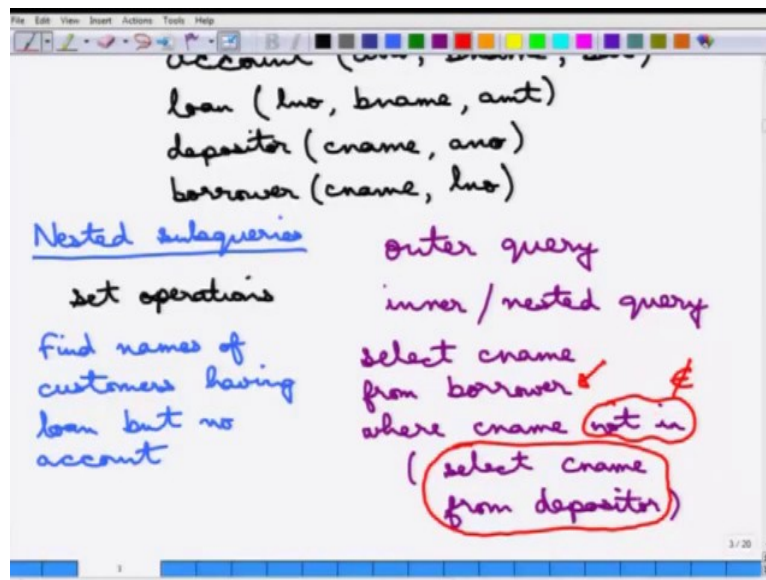 File Edit View Insert Actions Tools Help
account (ano, bname, bal)
loan (lno, bname, amt)
depositor (cname, ano)
borrower (cname, lno)
Nested subqueries
set operations
Find names of
customers having
loan but no
account
outer query
inner / nested query
select cname
from borrower
∉
where cname not in
( select cname
from depositor )
3 / 20
1